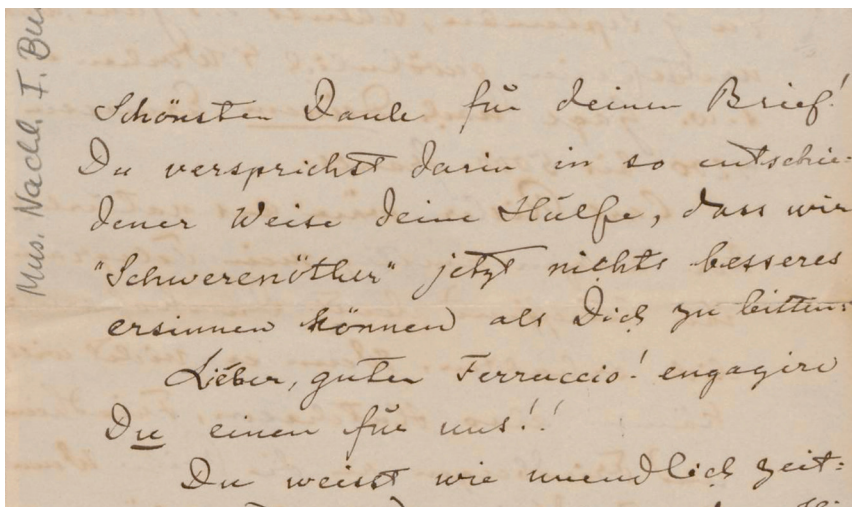 Mus. Nachl. F. Bu
Schönsten Dank für deinen Brief!
Du versprichst darin in so entschie-
dener Weise deine Hülfe, dass wir
"Schwerenöther" jetzt nichts besseres
ersinnen können als Dich zu bitten:
Lieber, guter Ferruccio! engagire
Du einen für uns!!
Du weisst wie unendlich zeit-